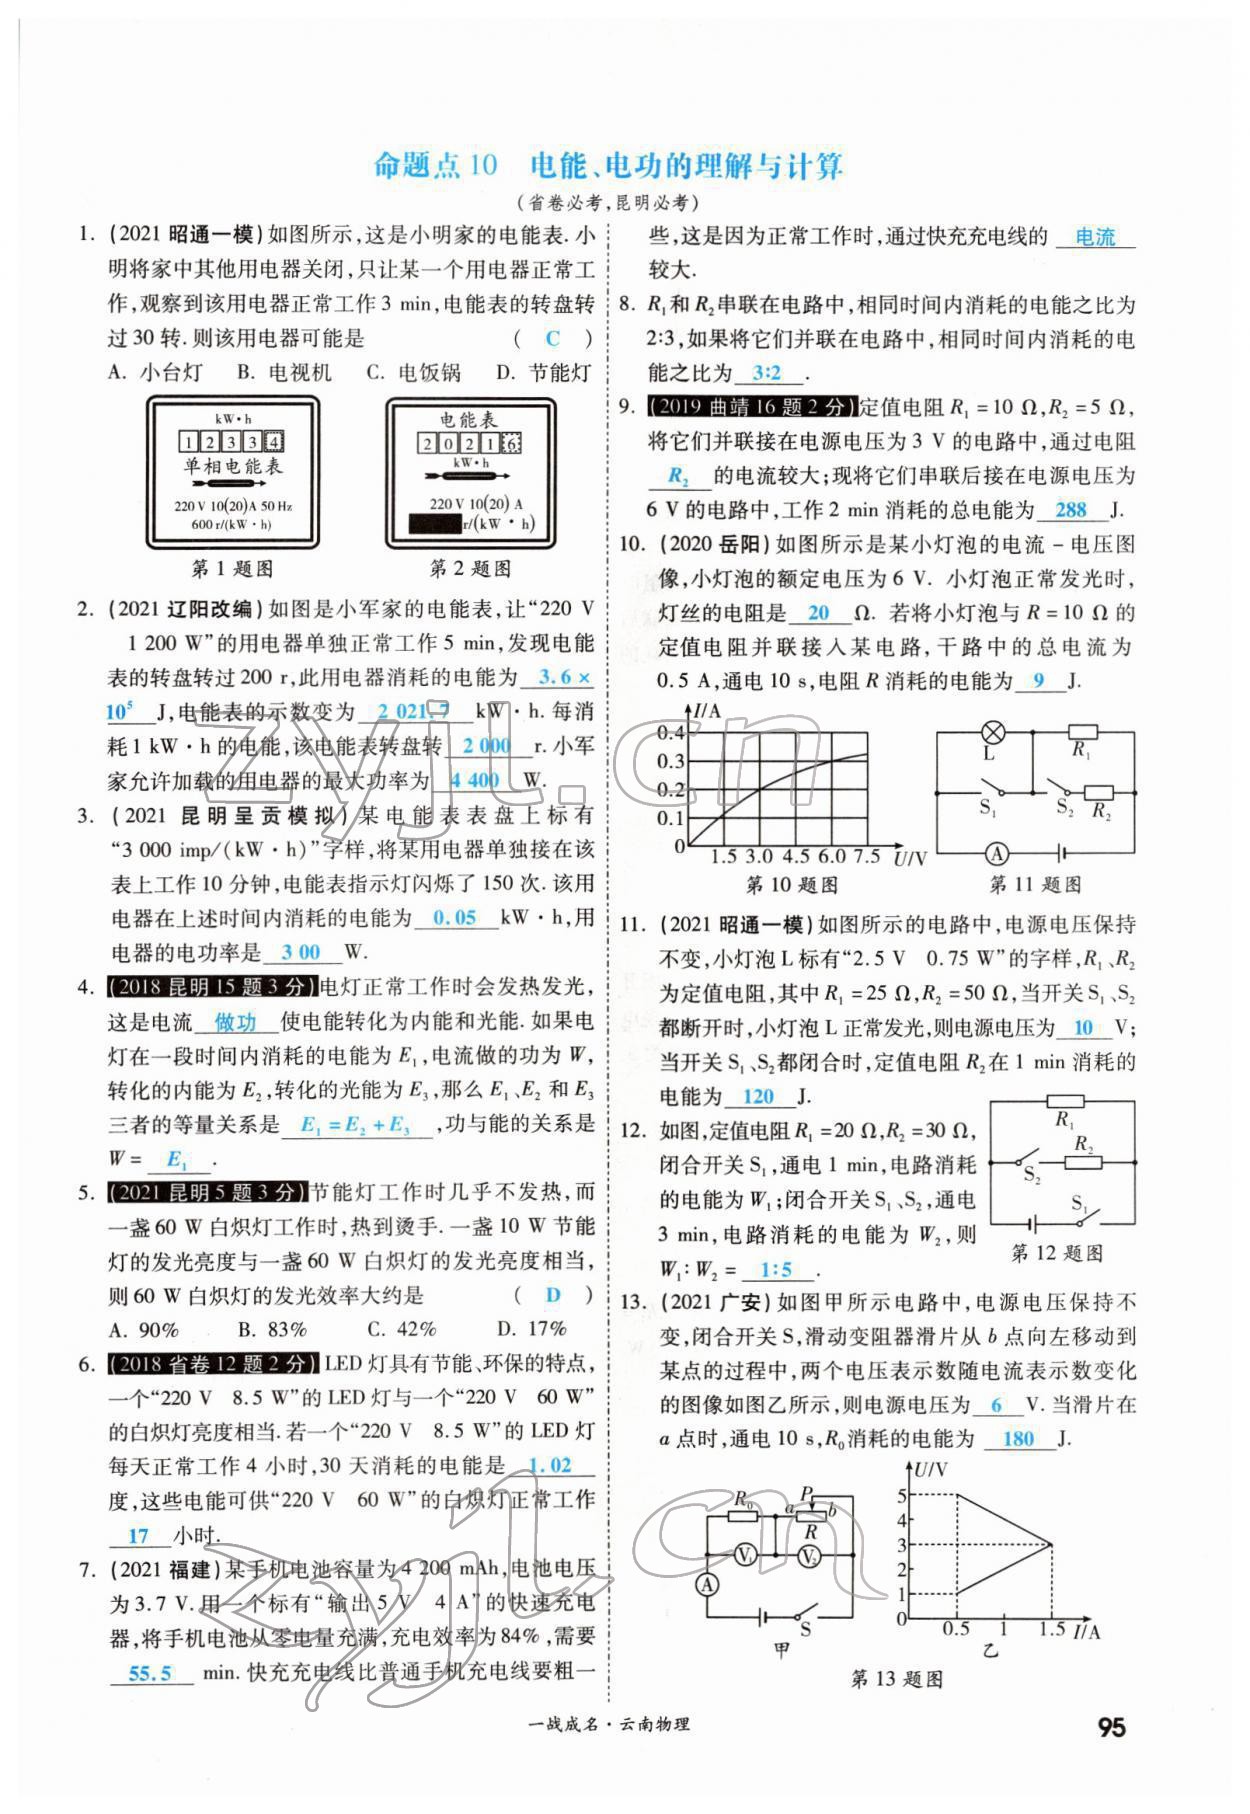 命题点 10 电能、电功的理解与计算
(省卷必考,昆明必考)
1. (2021 昭通一模)如图所示,这是小明家的电能表. 小
明将家中其他用电器关闭,只让某一个用电器正常工
作,观察到该用电器正常工作 3 min,电能表的转盘转
过 30 转. 则该用电器可能是 ( C )
A. 小台灯 B. 电视机 C. 电饭锅 D. 节能灯
kW·h
1 2 3 3 4
单相电能表
220 V 10(20)A 50 Hz
600 r/(kW·h)
第 1 题图
电能表
2 0 2 1 6
kW·h
220 V 10(20) A
r/(kW·h)
第 2 题图
2. (2021 辽阳改编)如图是小军家的电能表,让“220 V
1 200 W”的用电器单独正常工作 5 min,发现电能
表的转盘转过 200 r,此用电器消耗的电能为 3.6 ×
10⁵ J,电能表的示数变为 2 021.7 kW·h. 每消
耗 1 kW·h 的电能,该电能表转盘转 2 000 r. 小军
家允许加载的用电器的最大功率为 4 400 W.
3. (2021 昆明呈贡模拟)某电能表表盘上标有
“3 000 imp/(kW·h)”字样,将某用电器单独接在该
表上工作 10 分钟,电能表指示灯闪烁了 150 次. 该用
电器在上述时间内消耗的电能为 0.05 kW·h,用
电器的电功率是 300 W.
4. (2018 昆明 15 题 3 分)电灯正常工作时会发热发光,
这是电流 做功 使电能转化为内能和光能. 如果电
灯在一段时间内消耗的电能为 E₁,电流做的功为 W,
转化的内能为 E₂,转化的光能为 E₃,那么 E₁、E₂ 和 E₃
三者的等量关系是 E₁=E₂+E₃ ,功与能的关系是
W= E₁ .
5. (2021 昆明 5 题 3 分)节能灯工作时几乎不发热,而
一盏 60 W 白炽灯工作时,热到烫手. 一盏 10 W 节能
灯的发光亮度与一盏 60 W 白炽灯的发光亮度相当,
则 60 W 白炽灯的发光效率大约是 ( D )
A. 90% B. 83% C. 42% D. 17%
6. (2018 省卷 12 题 2 分) LED 灯具有节能、环保的特点,
一个“220 V 8.5 W”的 LED 灯与一个“220 V 60 W”
的白炽灯亮度相当. 若一个“220 V 8.5 W”的 LED 灯
每天正常工作 4 小时,30 天消耗的电能是 1.02
度,这些电能可供“220 V 60 W”的白炽灯正常工作
17 小时.
7. (2021 福建)某手机电池容量为 4 200 mAh,电池电压
为 3.7 V. 用一个标有“输出 5 V 4 A”的快速充电
器,将手机电池从零电量充满,充电效率为 84%,需要
55.5 min. 快充充电线比普通手机充电线要粗一
些,这是因为正常工作时,通过快充充电线的 电流
较大.
8. R₁和 R₂串联在电路中,相同时间内消耗的电能之比为
2:3,如果将它们并联在电路中,相同时间内消耗的电
能之比为 3:2 .
9. (2019 曲靖 16 题 2 分)定值电阻 R₁=10 Ω,R₂=5 Ω,
将它们并联接在电源电压为 3 V 的电路中,通过电阻
R₂ 的电流较大;现将它们串联后接在电源电压为
6 V 的电路中,工作 2 min 消耗的总电能为 288 J.
10. (2020 岳阳)如图所示是某小灯泡的电流－电压图
像,小灯泡的额定电压为 6 V. 小灯泡正常发光时,
灯丝的电阻是 20 Ω. 若将小灯泡与 R=10 Ω 的
定值电阻并联接入某电路,干路中的总电流为
0.5 A,通电 10 s,电阻 R 消耗的电能为 9 J.
I/A
0.4
0.3
0.2
0.1
0
1.5 3.0 4.5 6.0 7.5 U/V
第 10 题图
L R₁
S₁ S₂ R₂
A
第 11 题图
11. (2021 昭通一模)如图所示的电路中,电源电压保持
不变,小灯泡 L 标有“2.5 V 0.75 W”的字样,R₁、R₂
为定值电阻,其中 R₁=25 Ω,R₂=50 Ω,当开关 S₁、S₂
都断开时,小灯泡 L 正常发光,则电源电压为 10 V;
当开关 S₁、S₂都闭合时,定值电阻 R₂在 1 min 消耗的
电能为 120 J.
12. 如图,定值电阻 R₁=20 Ω,R₂=30 Ω,
闭合开关 S₁,通电 1 min,电路消耗
的电能为 W₁;闭合开关 S₁、S₂,通电
3 min,电路消耗的电能为 W₂,则
W₁:W₂= 1:5 .
R₁
R₂
S₂
S₁
第 12 题图
13. (2021 广安)如图甲所示电路中,电源电压保持不
变,闭合开关 S,滑动变阻器滑片从 b 点向左移动到
某点的过程中,两个电压表示数随电流表示数变化
的图像如图乙所示,则电源电压为 6 V. 当滑片在
a 点时,通电 10 s,R₀消耗的电能为 180 J.
R₀ a P b
R
V₁ V₂
A
S
甲
U/V
5
4
3
2
1
0
0.5 1 1.5 I/A
乙
第 13 题图
一战成名·云南物理
95
zyjl.cn
zyjl.cn